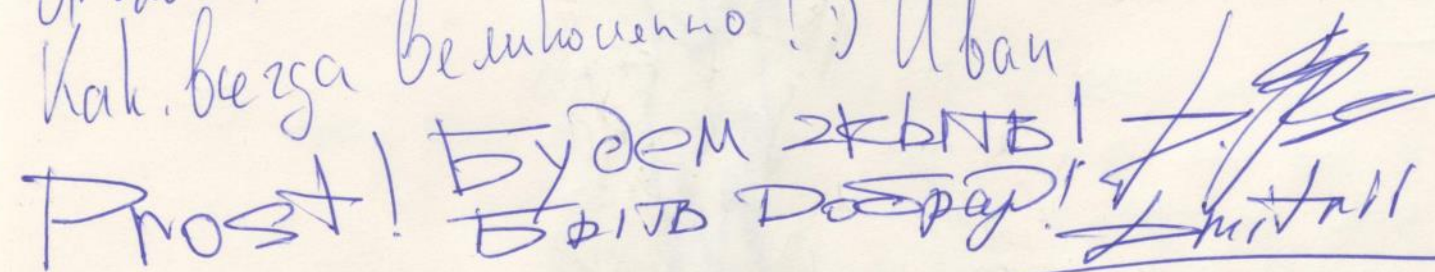 Как всегда великопенно! :) Иван
Prost! Будем жыть!
Быть Добру! Dmitrii